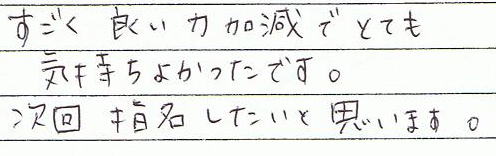 すごく 良い力加減でとても
気持ちよかったです。
次回 指名したいと思います。